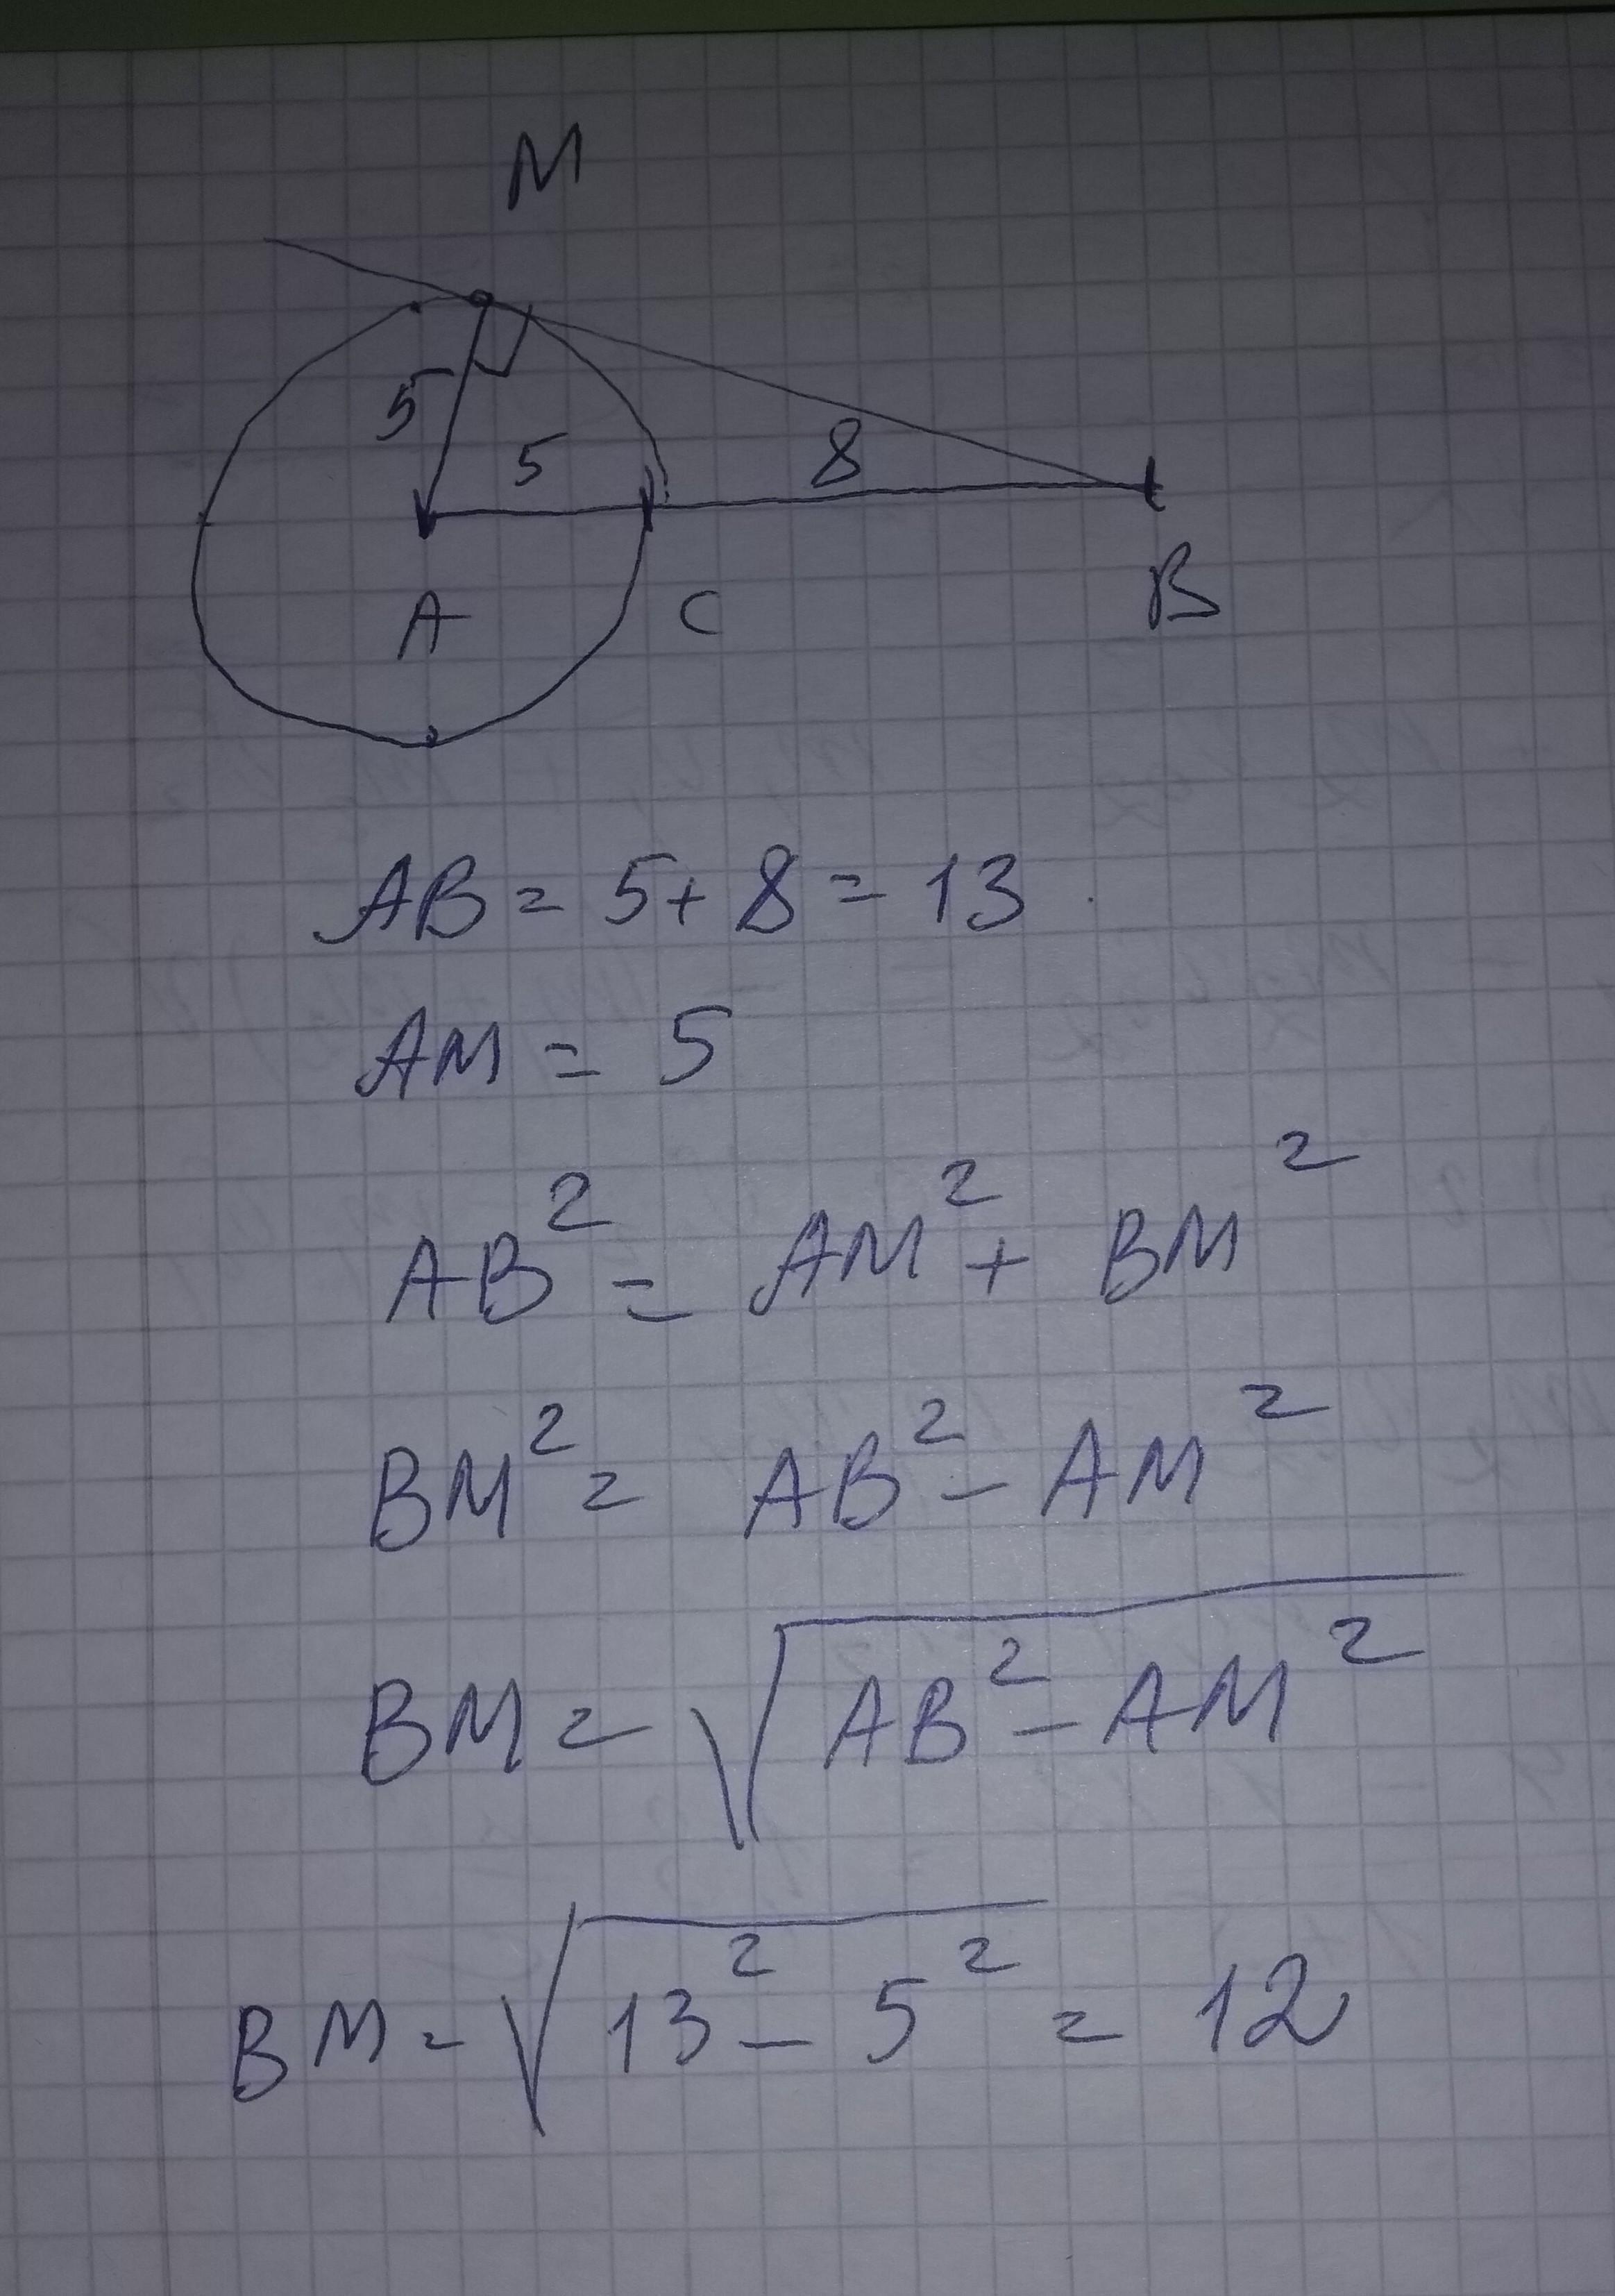 M
5
5
8
A
C
B
AB = 5 + 8 = 13
AM = 5
AB² = AM² + BM²
BM² = AB² - AM²
BM = √(AB² - AM²)
BM = √(13² - 5²) = 12